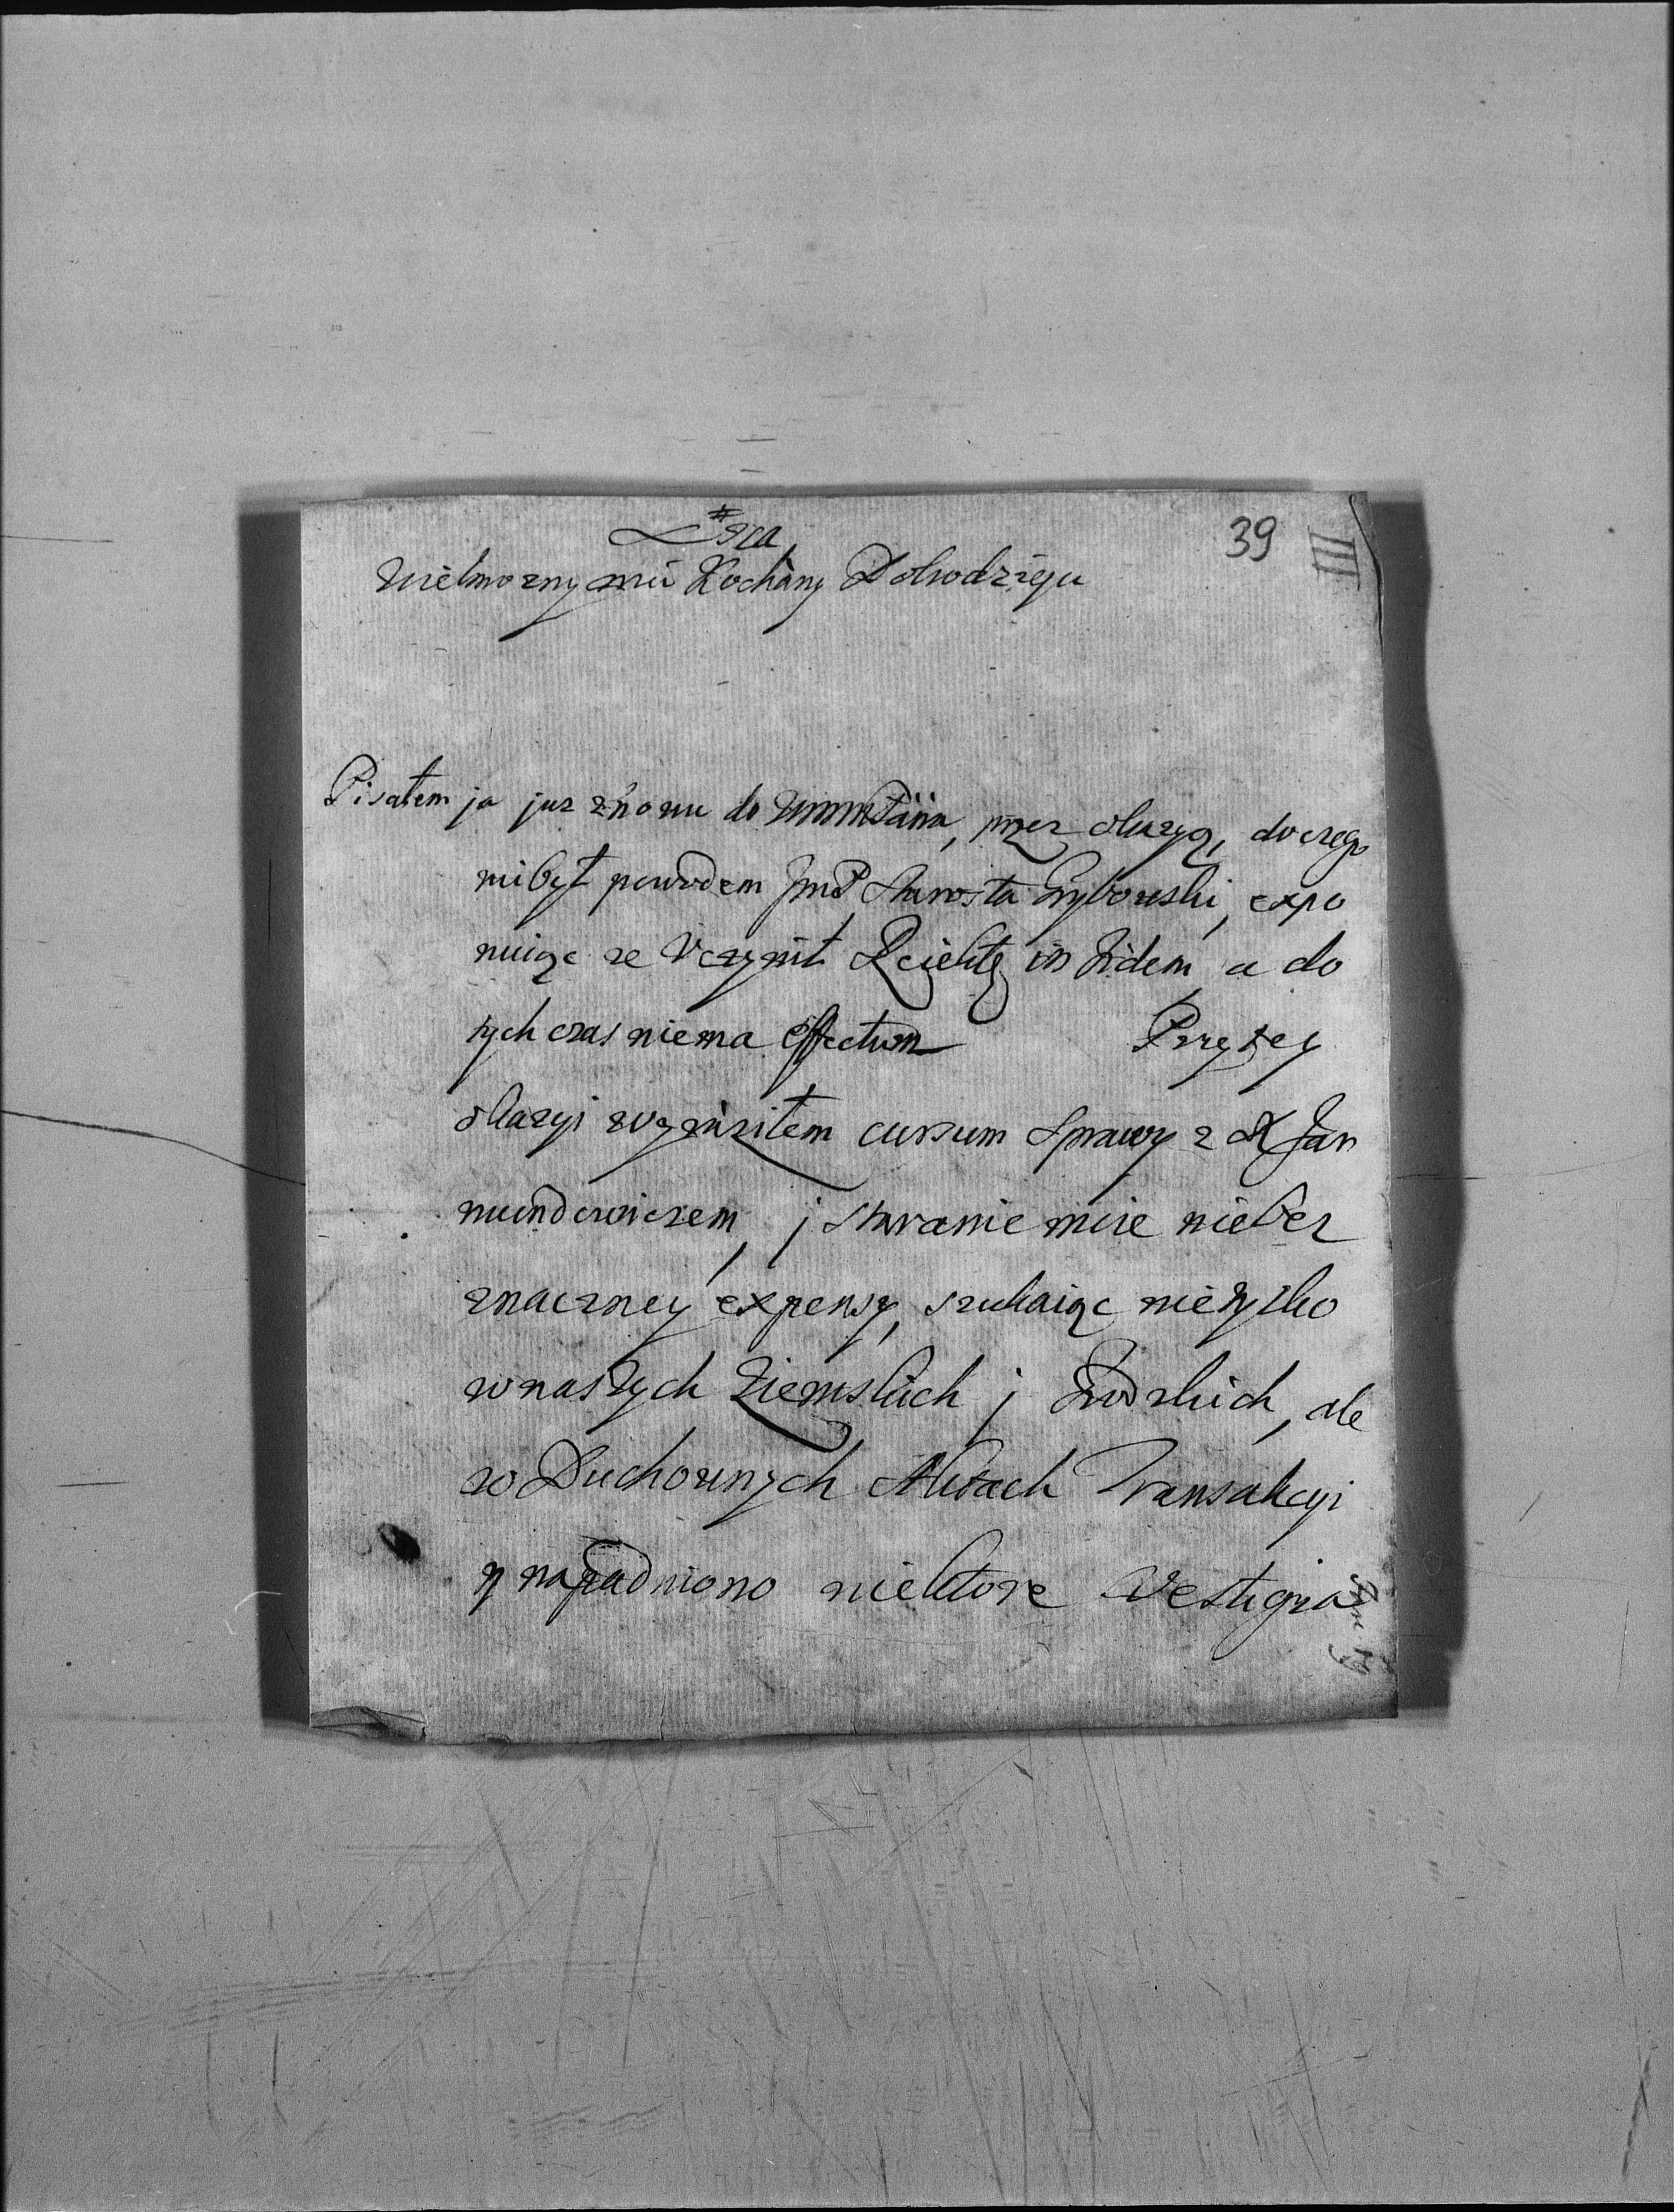 39
III
Wielmozny mu Kochany Dobrodzieju
Pisałem ja juz znowu do WmmPana, przez okazyą, do czego
mi był powodem JmP Starosta Grybowski, expo
nuiąc ze Vczynił in Fidem, a do
tych czas niema effectum Przy tey
okazyi wyraziłem cursum Sprawy z X Jan
mundowiczem, j staranie moie niebez
znaczney expensy, szukaiąc nietylko
w naszych Ziemskich j Grodzkich, ale
w Duchownych Aktach Transakcyi
y napadniono niektore Vestigia